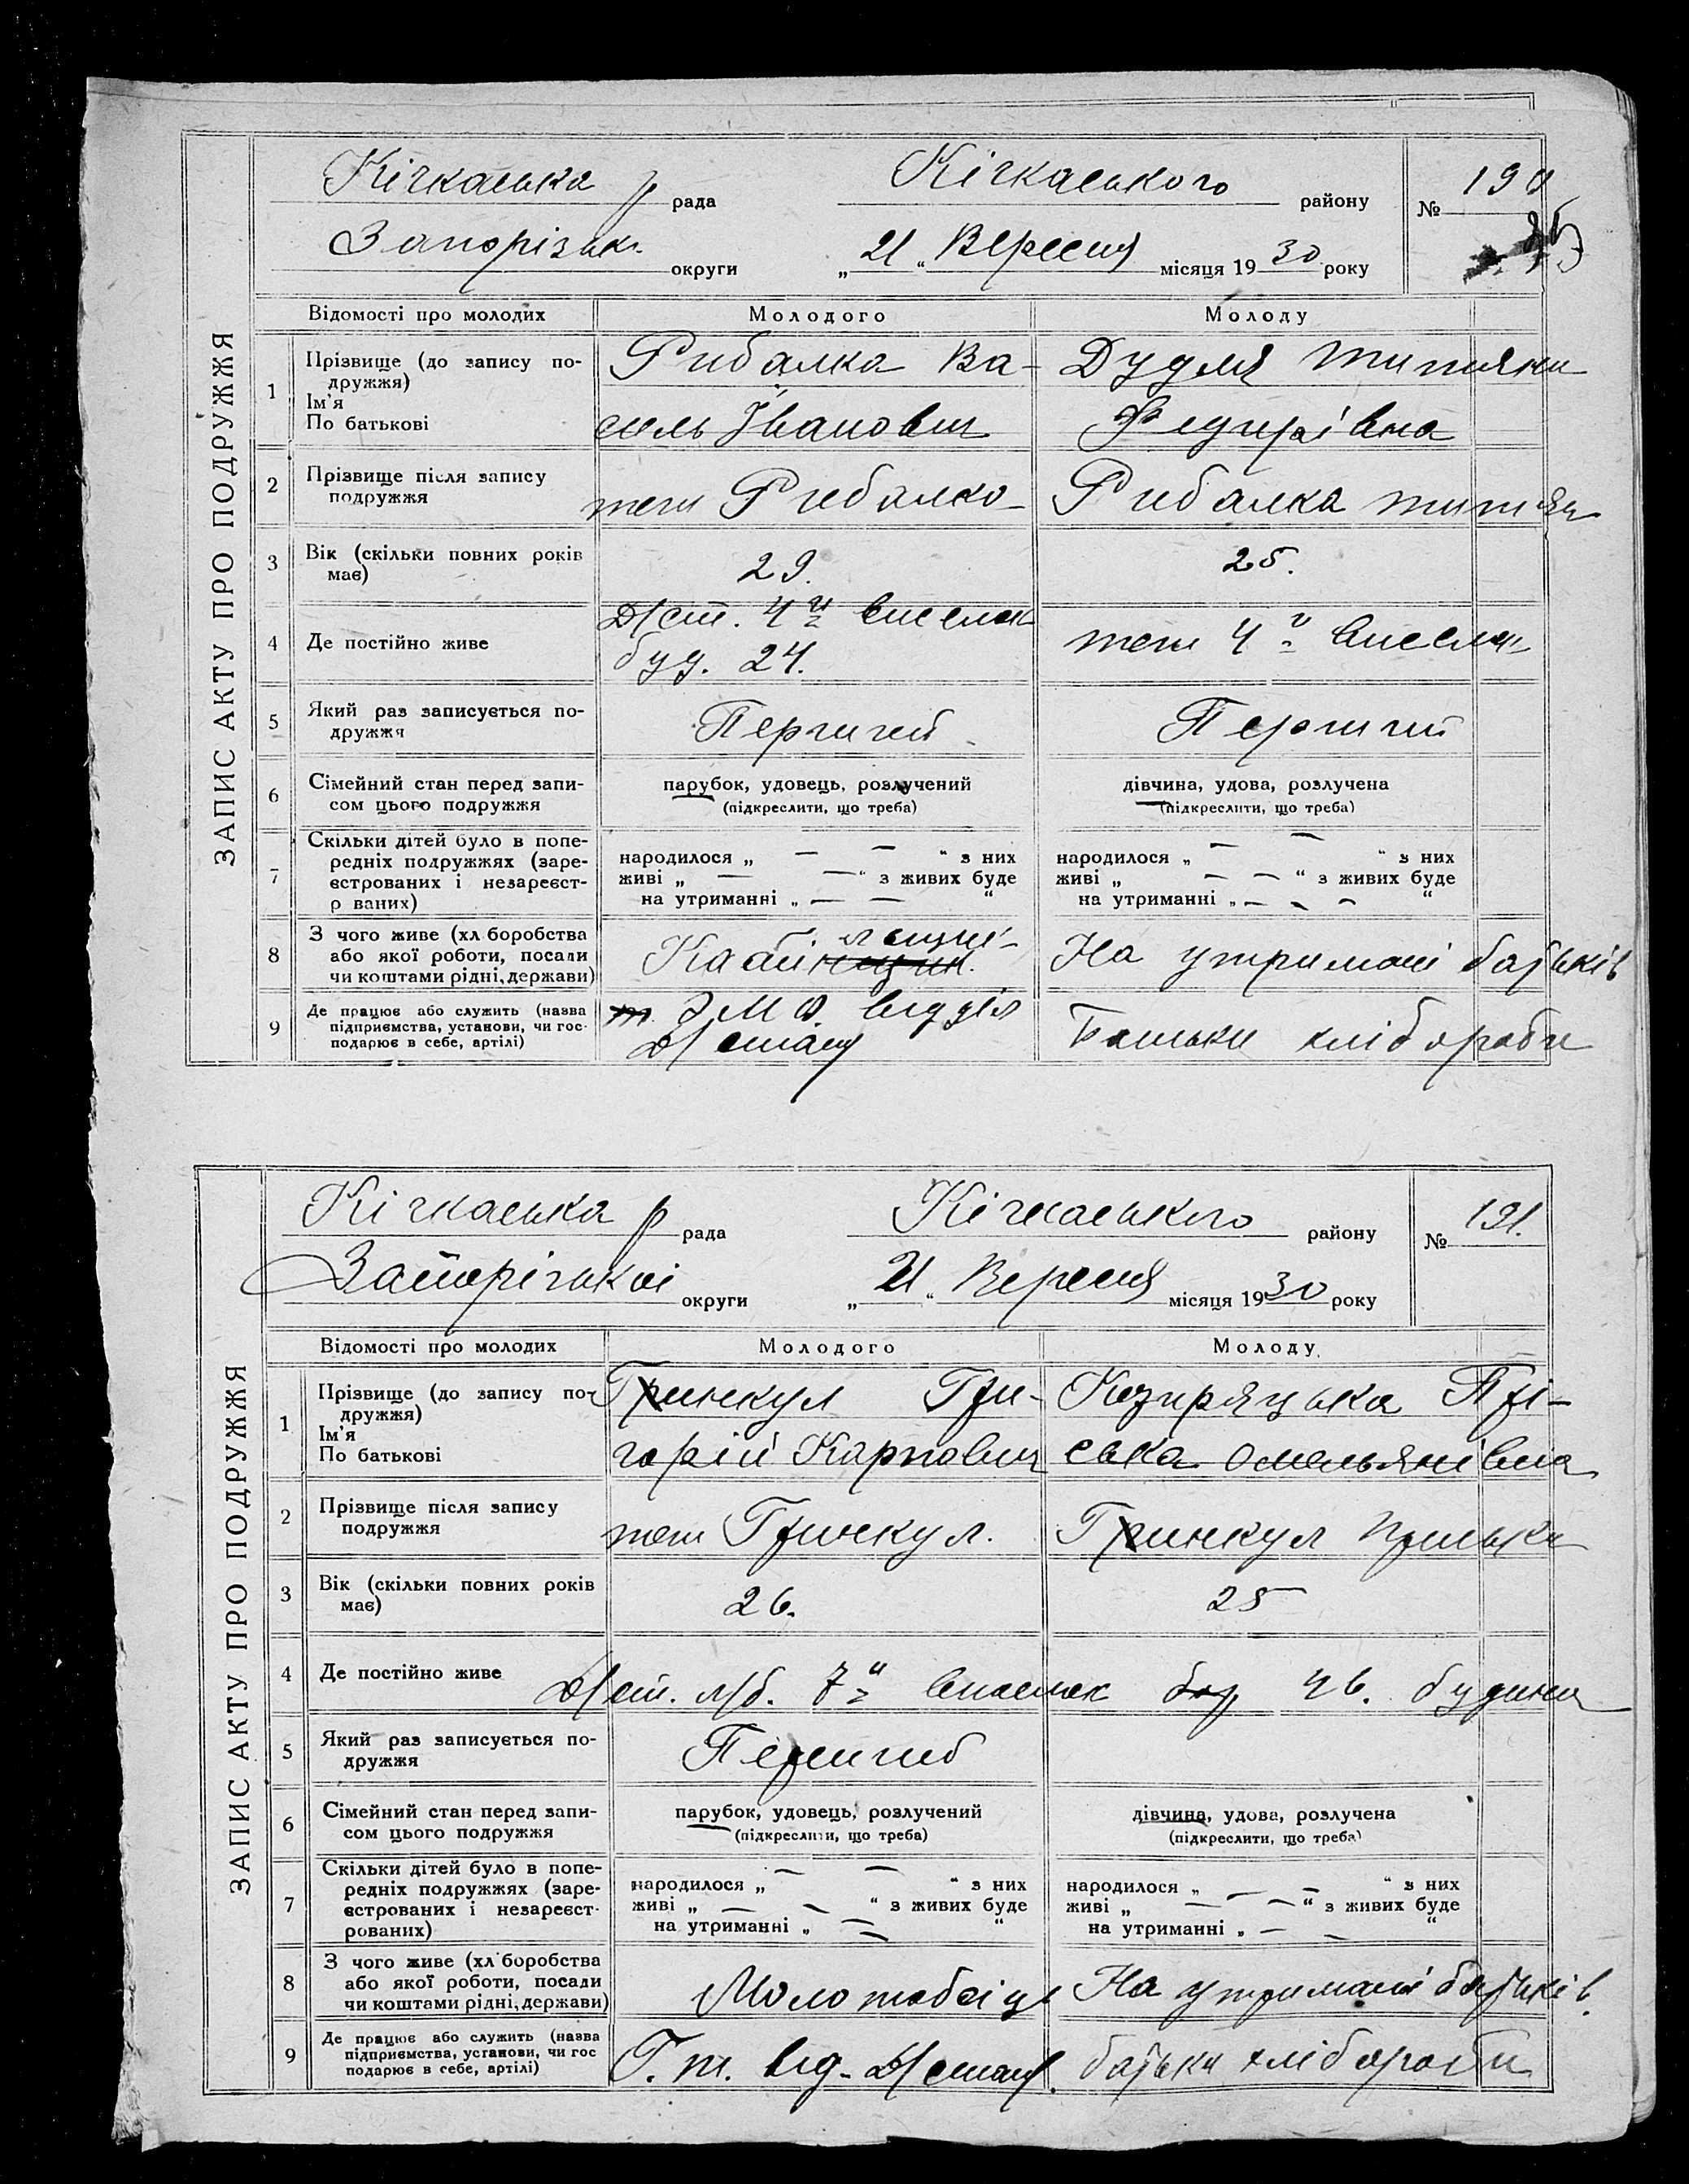 ЗАПИС АКТУ ПРО ПОДРУЖЖЯ
Кічкаська р рада Кічкаського району № 190
Запорізьк. округи „21“ Вересня місяця 1930 року
Відомості про молодих Молодого Молоду
1 Прізвище (до запису по-
дружжя)
Ім'я
По батькові
Рибалка Ва-
силь Іванович
Дудля
Федорівна
2 Прізвище після запису
подружжя
теж Рибалко
Рибалка
3 Вік (скільки повних років
має)
29.
25.
4 Де постійно живе
Д/ст. 4й виселок
буд. 24.
теж 4й виселок
5 Який раз записується по-
дружжя
Перший
Перший
6 Сімейний стан перед запи-
сом цього подружжя
парубок, удовець, розлучений
(підкреслити, що треба)
дівчина, удова, розлучена
(підкреслити, що треба)
7 Скільки дітей було в попе-
редніх подружжях (заре-
єстрованих і незареєст-
р ваних)
народилося „ — — “ з них
живі „ — — “ з живих буде
на утриманні „ — — “
народилося „ — — “ з них
живі „ — — “ з живих буде
на утриманні „ — — — “
8 З чого живе (хл боробства
або якої роботи, посади
чи коштами рідні, держави)
На утримані батьків
9 Де працює або служить (назва
підприємства, установи, чи гос-
подарює в себе, артілі)
відділ
Батьки хлібороби
ЗАПИС АКТУ ПРО ПОДРУЖЖЯ
Кічкаська р рада Кічкаського району № 191.
Запорізькоі округи „21“ Вересня місяця 1930 року
Відомості про молодих Молодого Молоду
1 Прізвище (до запису по-
дружжя)
Ім'я
По батькові
Гринкул Гри-
горій Карпович
Козиряцька Прі-
ська Омельянівна
2 Прізвище після запису
подружжя
теж Гринкул.
Гринкул Приська
3 Вік (скільки повних років
має)
26.
25
4 Де постійно живе
Д/ст. 7й виселок 46. будинок
5 Який раз записується по-
дружжя
Перший
6 Сімейний стан перед запи-
сом цього подружжя
парубок, удовець, розлучений
(підкреслити, що треба)
дівчина, удова, розлучена
(підкреслити, що треба)
7 Скільки дітей було в попе-
редніх подружжях (заре-
єстрованих і незареєст-
рованих)
народилося „ — — “ з них
живі „ — — “ з живих буде
на утриманні „ — — “
народилося „ — — “ з них
живі „ — — “ з живих буде
на утриманні „ — — “
8 З чого живе (хл боробства
або якої роботи, посади
чи коштами рідні, держави)
Молотобоіць
На утримані батьків.
9 Де працює або служить (назва
підприємства, установи, чи гос
подарює в себе, артілі)
батьки хлібороби